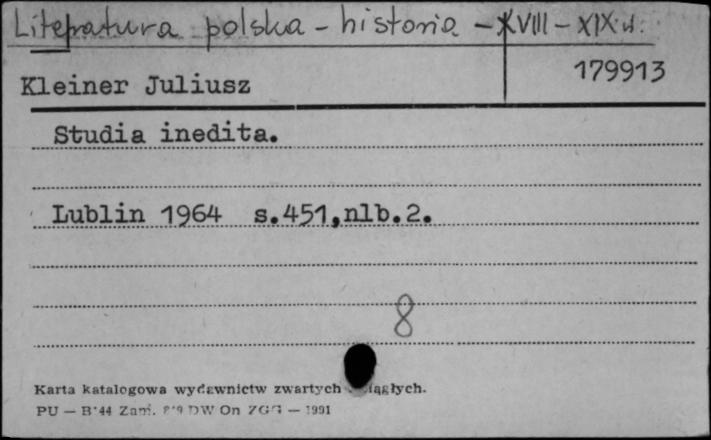 Literatura polska - historia - XVIII - XIX w.
179913
Kleiner Juliusz
Studia inedita.
Lublin 1964 s.451,nlb.2.
8
Karta katalogowa wydawnictw zwartych
PU — B'44 Zam. DW On ZGG — 1991